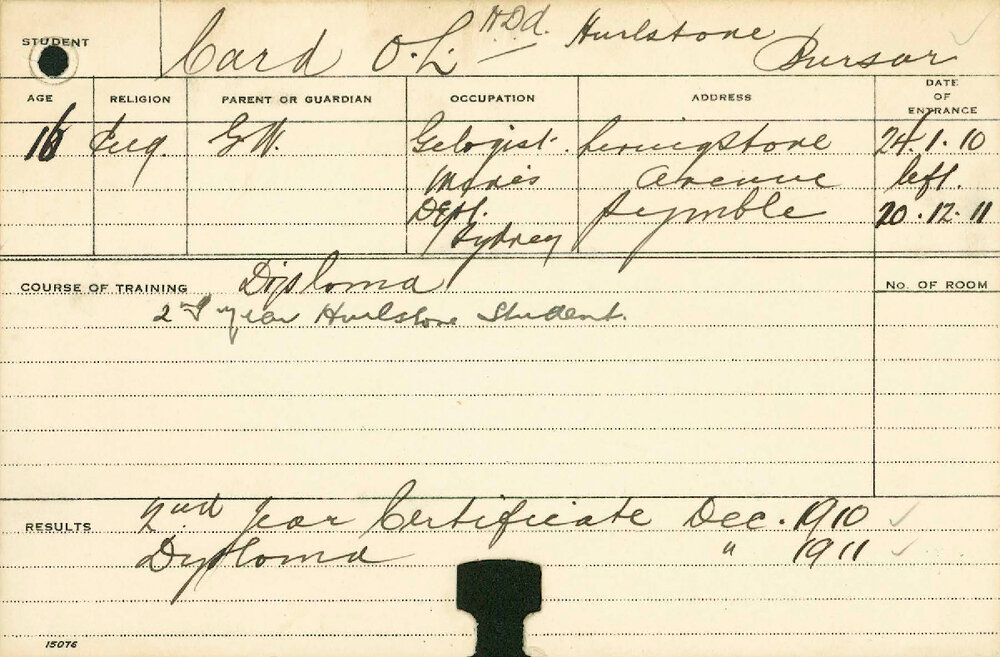 STUDENT Card O.L. H.D.d. Hurlstone Bursar
AGE RELIGION PARENT OR GUARDIAN OCCUPATION ADDRESS DATE OF ENTRANCE
16 Eng. G.W. Geologist. Livingstone 24.1.10
Mines Avenue left.
Dept. Pymble 20.12.11
Sydney
COURSE OF TRAINING Diploma No. OF ROOM
2nd year Hurlstone Student.
RESULTS 2nd Year Certificate Dec. 1910
Dyploma " 1911
15076